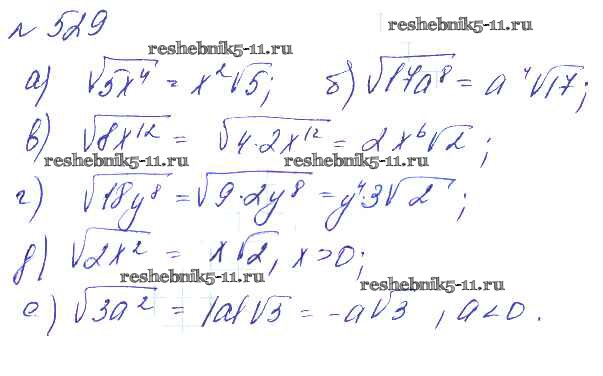 № 529
reshebnik5-11.ru
reshebnik5-11.ru
а) √5x⁴ = x²√5; б) √17a⁸ = a⁴√17;
в) √8x¹² = √4·2x¹² = 2x⁶√2;
reshebnik5-11.ru reshebnik5-11.ru
г) √18y⁸ = √9·2y⁸ = y⁴·3√2;
д) √2x² = x√2, x>0;
reshebnik5-11.ru reshebnik5-11.ru
е) √3a² = |a|√3 = -a√3, a<0.